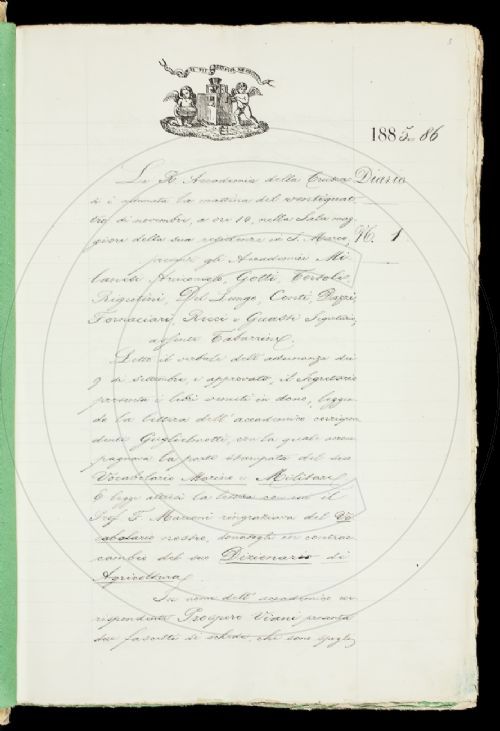 3
IL PIÙ BEL FIOR NE COGLIE
1885-86
La R. Accademia della Crusca
Diario
si è adunata la mattina del ventiquat
tro di novembre, a ore 10, nella Sala mag
giore della sua residenza in S. Marco,
N. 1
presenti gli Accademici Mi
lanesi Arciconsolo, Gotti, Tortoli,
Rigutini, Del Lungo, Conti, Dazzi,
Fornaciari, Ricci e Guasti Segretario,
assente Tabarrini.
Letto il verbale dell'adunanza dei
9 di settembre, e approvato, il Segretario
presenta i libri venuti in dono, leggen
do la lettera dell'accademico corrispon
dente Guglielmotti, con la quale accom
pagnava la parte stampata del suo
Vocabolario Marino e Militare.
E legge altresì la lettera con cui il
Prof. F. ringraziava del Vo
cabolario nostro, donatogli in contrac
cambio del suo Dizionario di
Agricoltura.
In nome dell'accademico cor
rispondente Prospero Viani presenta
due fascetti di schede, che sono spogli